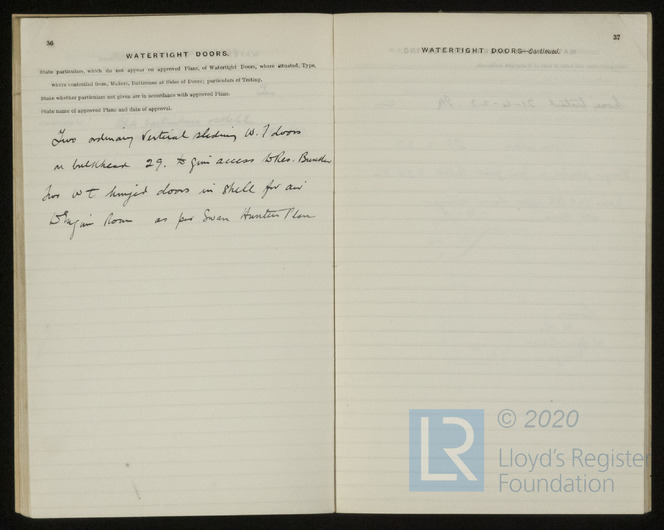 36
WATERTIGHT DOORS.
State particulars, which do not appear on approved Plans, of Watertight Doors, where situated, Type,
where controlled from, Makers, Thickness at Sides of Doors; particulars of Testing.
State whether particulars not given are in accordance with approved Plans.
State name of approved Plans and date of approval.
Two ordinary Vertical sliding W.T doors
on bulkhead 29. to give access to Res. Bunker
Two WT hinged doors in shell for air
to Engine Room as per Swan Hunter Plan
37
WATERTIGHT DOORS—Continued.
LR
© 2020
Lloyd's Register
Foundation